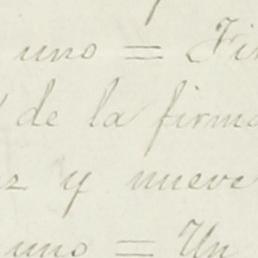 uno = Fir
de la firma
z y nueve
uno = Un